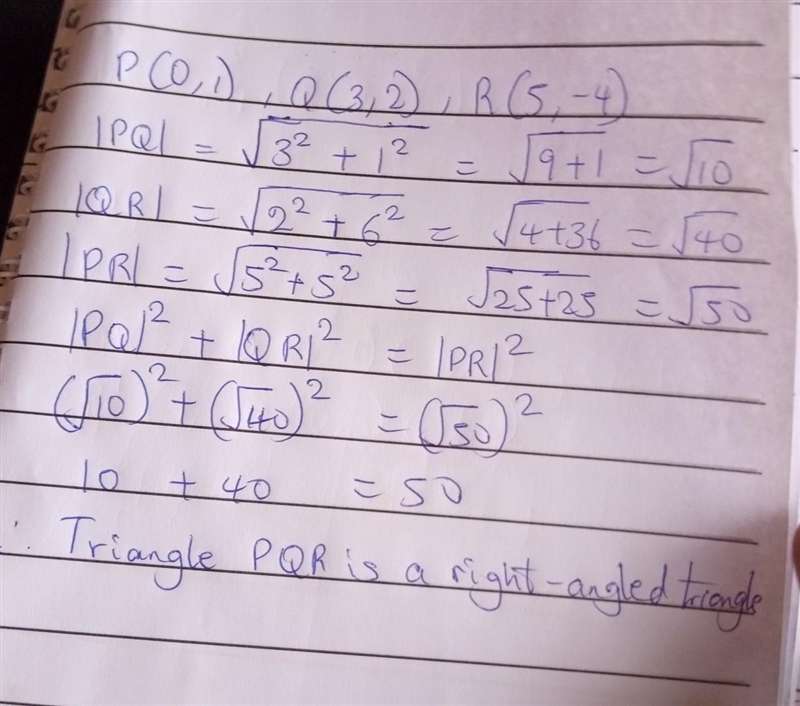 P(0,1), Q(3,2), R(5,-4)
|PQ| = √3² + 1² = √9+1 = √10
|QR| = √2² + 6² = √4+36 = √40
|PR| = √5² + 5² = √25+25 = √50
|PQ|² + |QR|² = |PR|²
(√10)² + (√40)² = (√50)²
10 + 40 = 50
∴ Triangle PQR is a right-angled triangle